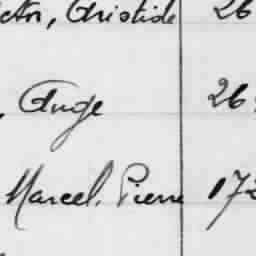 Aristide 26
, Ange 26
Marcel, Pierre 172